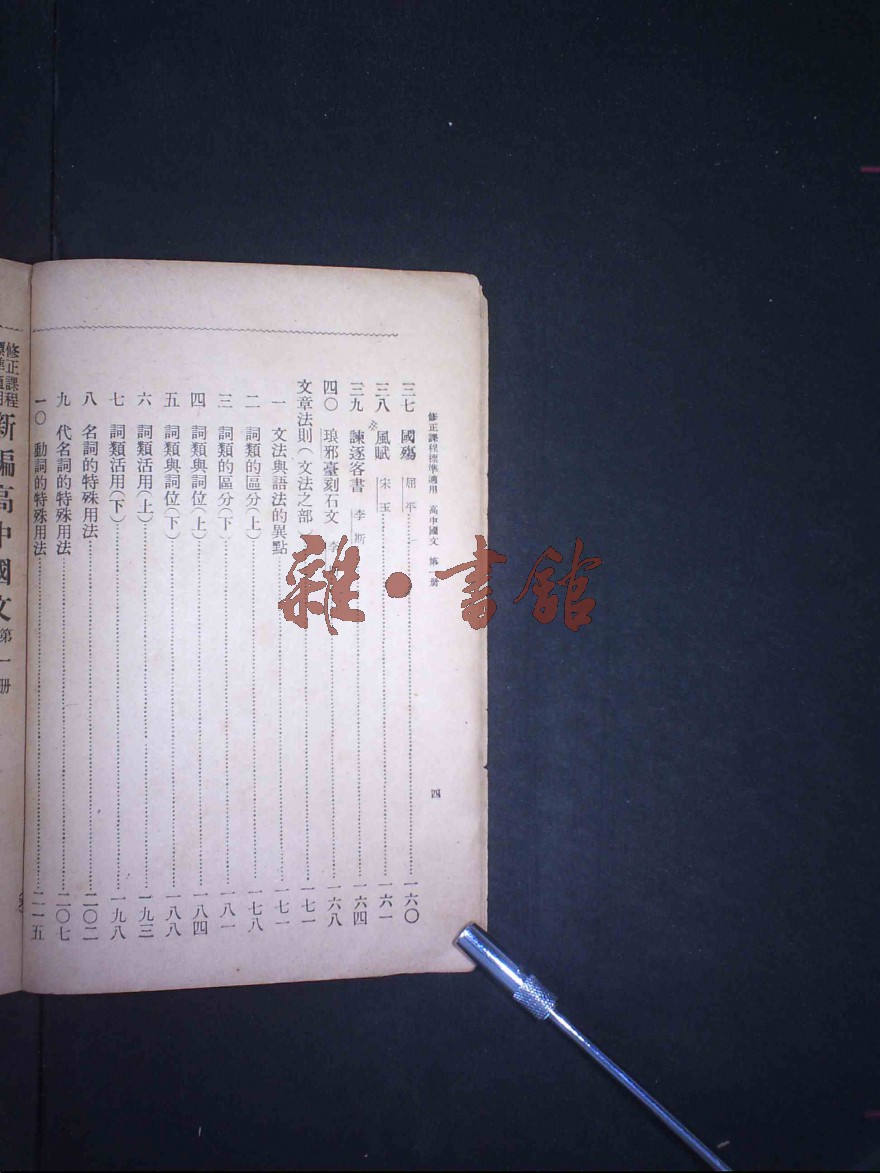 修正課程標準適用 高中國文 第一册 四
三七 國殤 屈平 一六〇
三八 風賦 宋玉 一六一
三九 諫逐客書 李斯 一六四
四〇 琅邪臺刻石文 李 一六八
文章法則(文法之部) 一七一
一 文法與語法的異點 一七一
二 詞類的區分(上) 一七八
三 詞類的區分(下) 一八一
四 詞類與詞位(上) 一八四
五 詞類與詞位(下) 一八八
六 詞類活用(上) 一九三
七 詞類活用(下) 一九八
八 名詞的特殊用法 二〇二
九 代名詞的特殊用法 二〇七
一〇 動詞的特殊用法 二一五
修正課程
新編高中國文 第一册
雜·書館